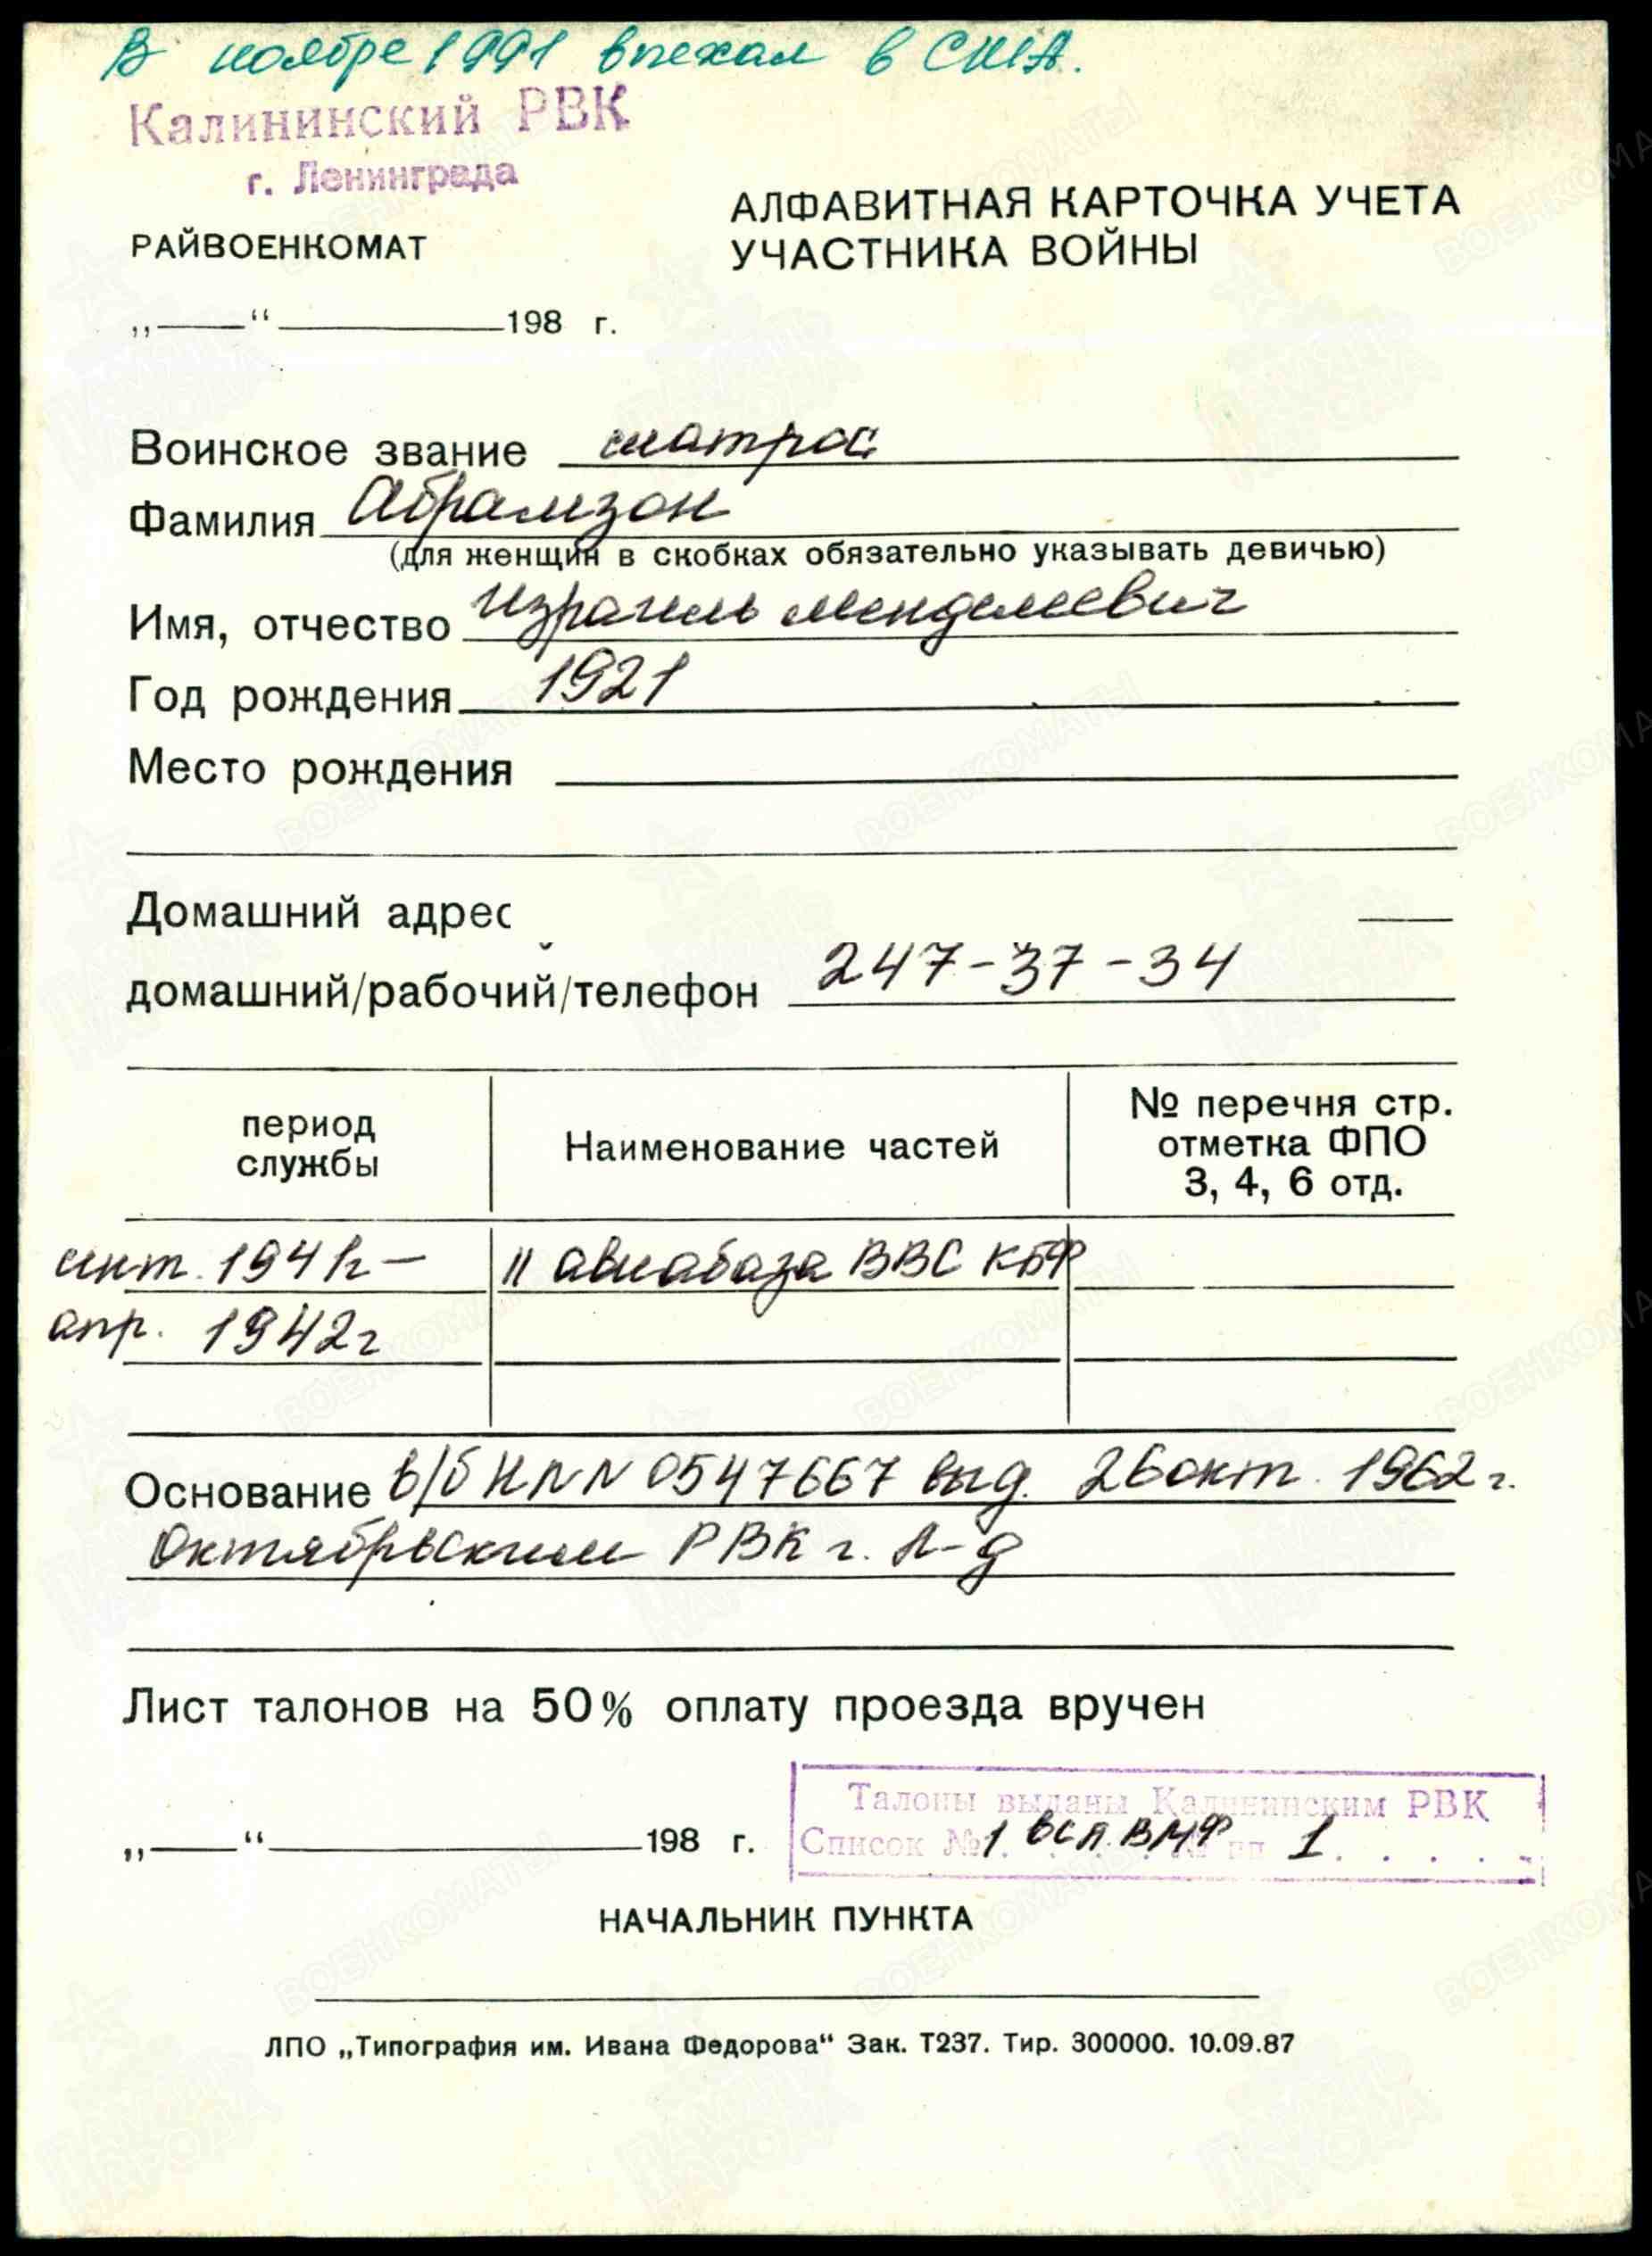 В ноябре 1991 выехал в США.
Калининский РВК
г. Ленинграда
РАЙВОЕНКОМАТ
АЛФАВИТНАЯ КАРТОЧКА УЧЕТА
УЧАСТНИКА ВОЙНЫ
„——“ ————198 г.
Воинское звание матрос
Фамилия Абрамзон
(для женщин в скобках обязательно указывать девичью)
Имя, отчество Израиль Менделеевич
Год рождения 1921
Место рождения
Домашний адрес
домашний/рабочий/телефон 247-37-34
период
службы
Наименование частей
№ перечня стр.
отметка ФПО
3, 4, 6 отд.
сент. 1941г — 11 авиабаза ВВС КБФ
апр. 1942г
Основание в/б НЛ N 0547667 выд. 26 окт. 1962 г.
Октябрьским РВК г. Л-д
Лист талонов на 50% оплату проезда вручен
„——“ ————198 г.
Талоны выданы Калининским РВК
Список № 1 всп. ВМФ № пп 1
НАЧАЛЬНИК ПУНКТА
ЛПО „Типография им. Ивана Федорова“ Зак. Т237. Тир. 300000. 10.09.87
ВОЕНКОМАТЫ
ПАМЯТЬ НАРОДА